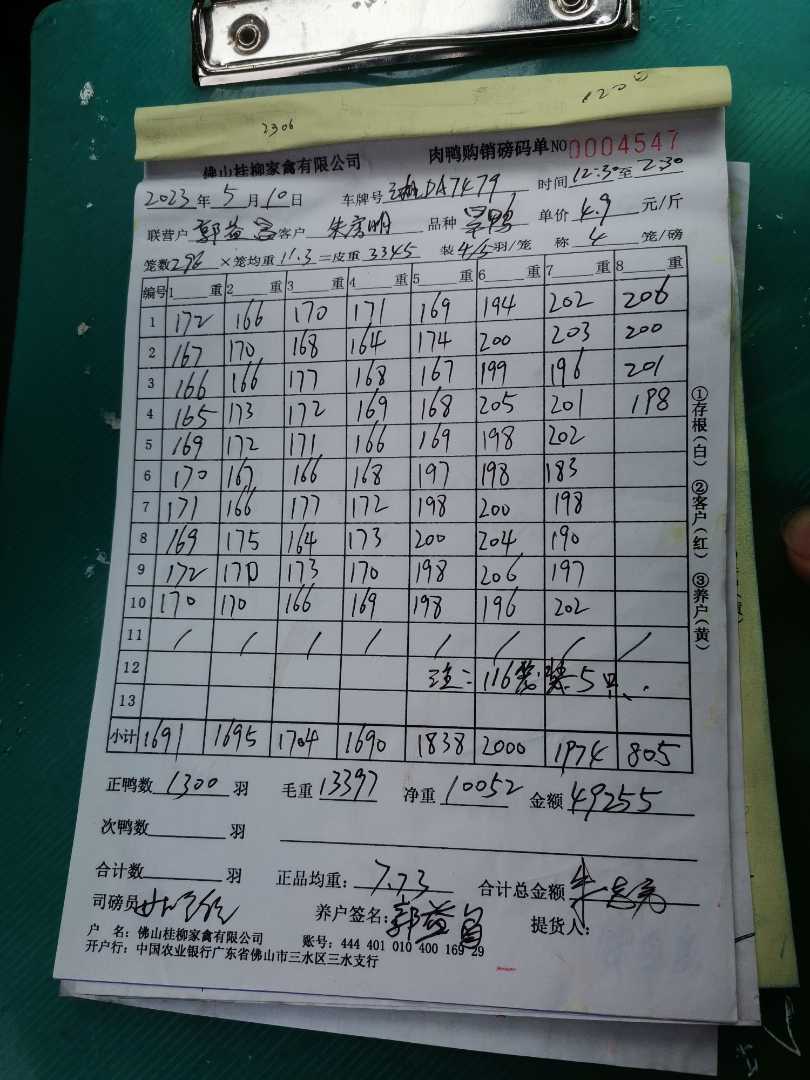 1200
2306
佛山桂柳家禽有限公司 肉鸭购销磅码单 NO 0004547
2023 年 5 月 10 日 车牌号 DA7479 时间 12:30 至 2:30
联营户 郭益昌 客户 品种 单价 4.9 元/斤
笼数 296 × 笼均重 11.3 = 皮重 3345 装 4/5 羽/笼 称 4 笼/磅
编号 1 重 2 重 3 重 4 重 5 重 6 重 7 重 8 重
1 172 166 170 171 169 194 202 206
2 167 170 168 164 174 200 203 200
3 166 166 177 168 167 199 196 201
4 165 173 172 169 168 205 201 198
5 169 172 171 166 169 198 202
6 170 167 166 168 197 198 183
7 171 166 177 172 198 200 198
8 169 175 164 173 200 204 190
9 172 170 173 170 198 206 197
10 170 170 166 169 198 196 202
11 / / / / / / / /
12 注：116笼装5只.
13
小计 1691 1695 1704 1690 1838 2000 1974 805
正鸭数 1300 羽 毛重 13397 净重 10052 金额 49255
次鸭数 羽
合计数 羽 正品均重: 7.73 合计总金额
司磅员 养户签名: 郭益昌 提货人:
户 名: 佛山桂柳家禽有限公司 账号: 444 401 010 400 169 29
开户行: 中国农业银行广东省佛山市三水区三水支行
①存根(白) ②客户(红) ③养户(黄)